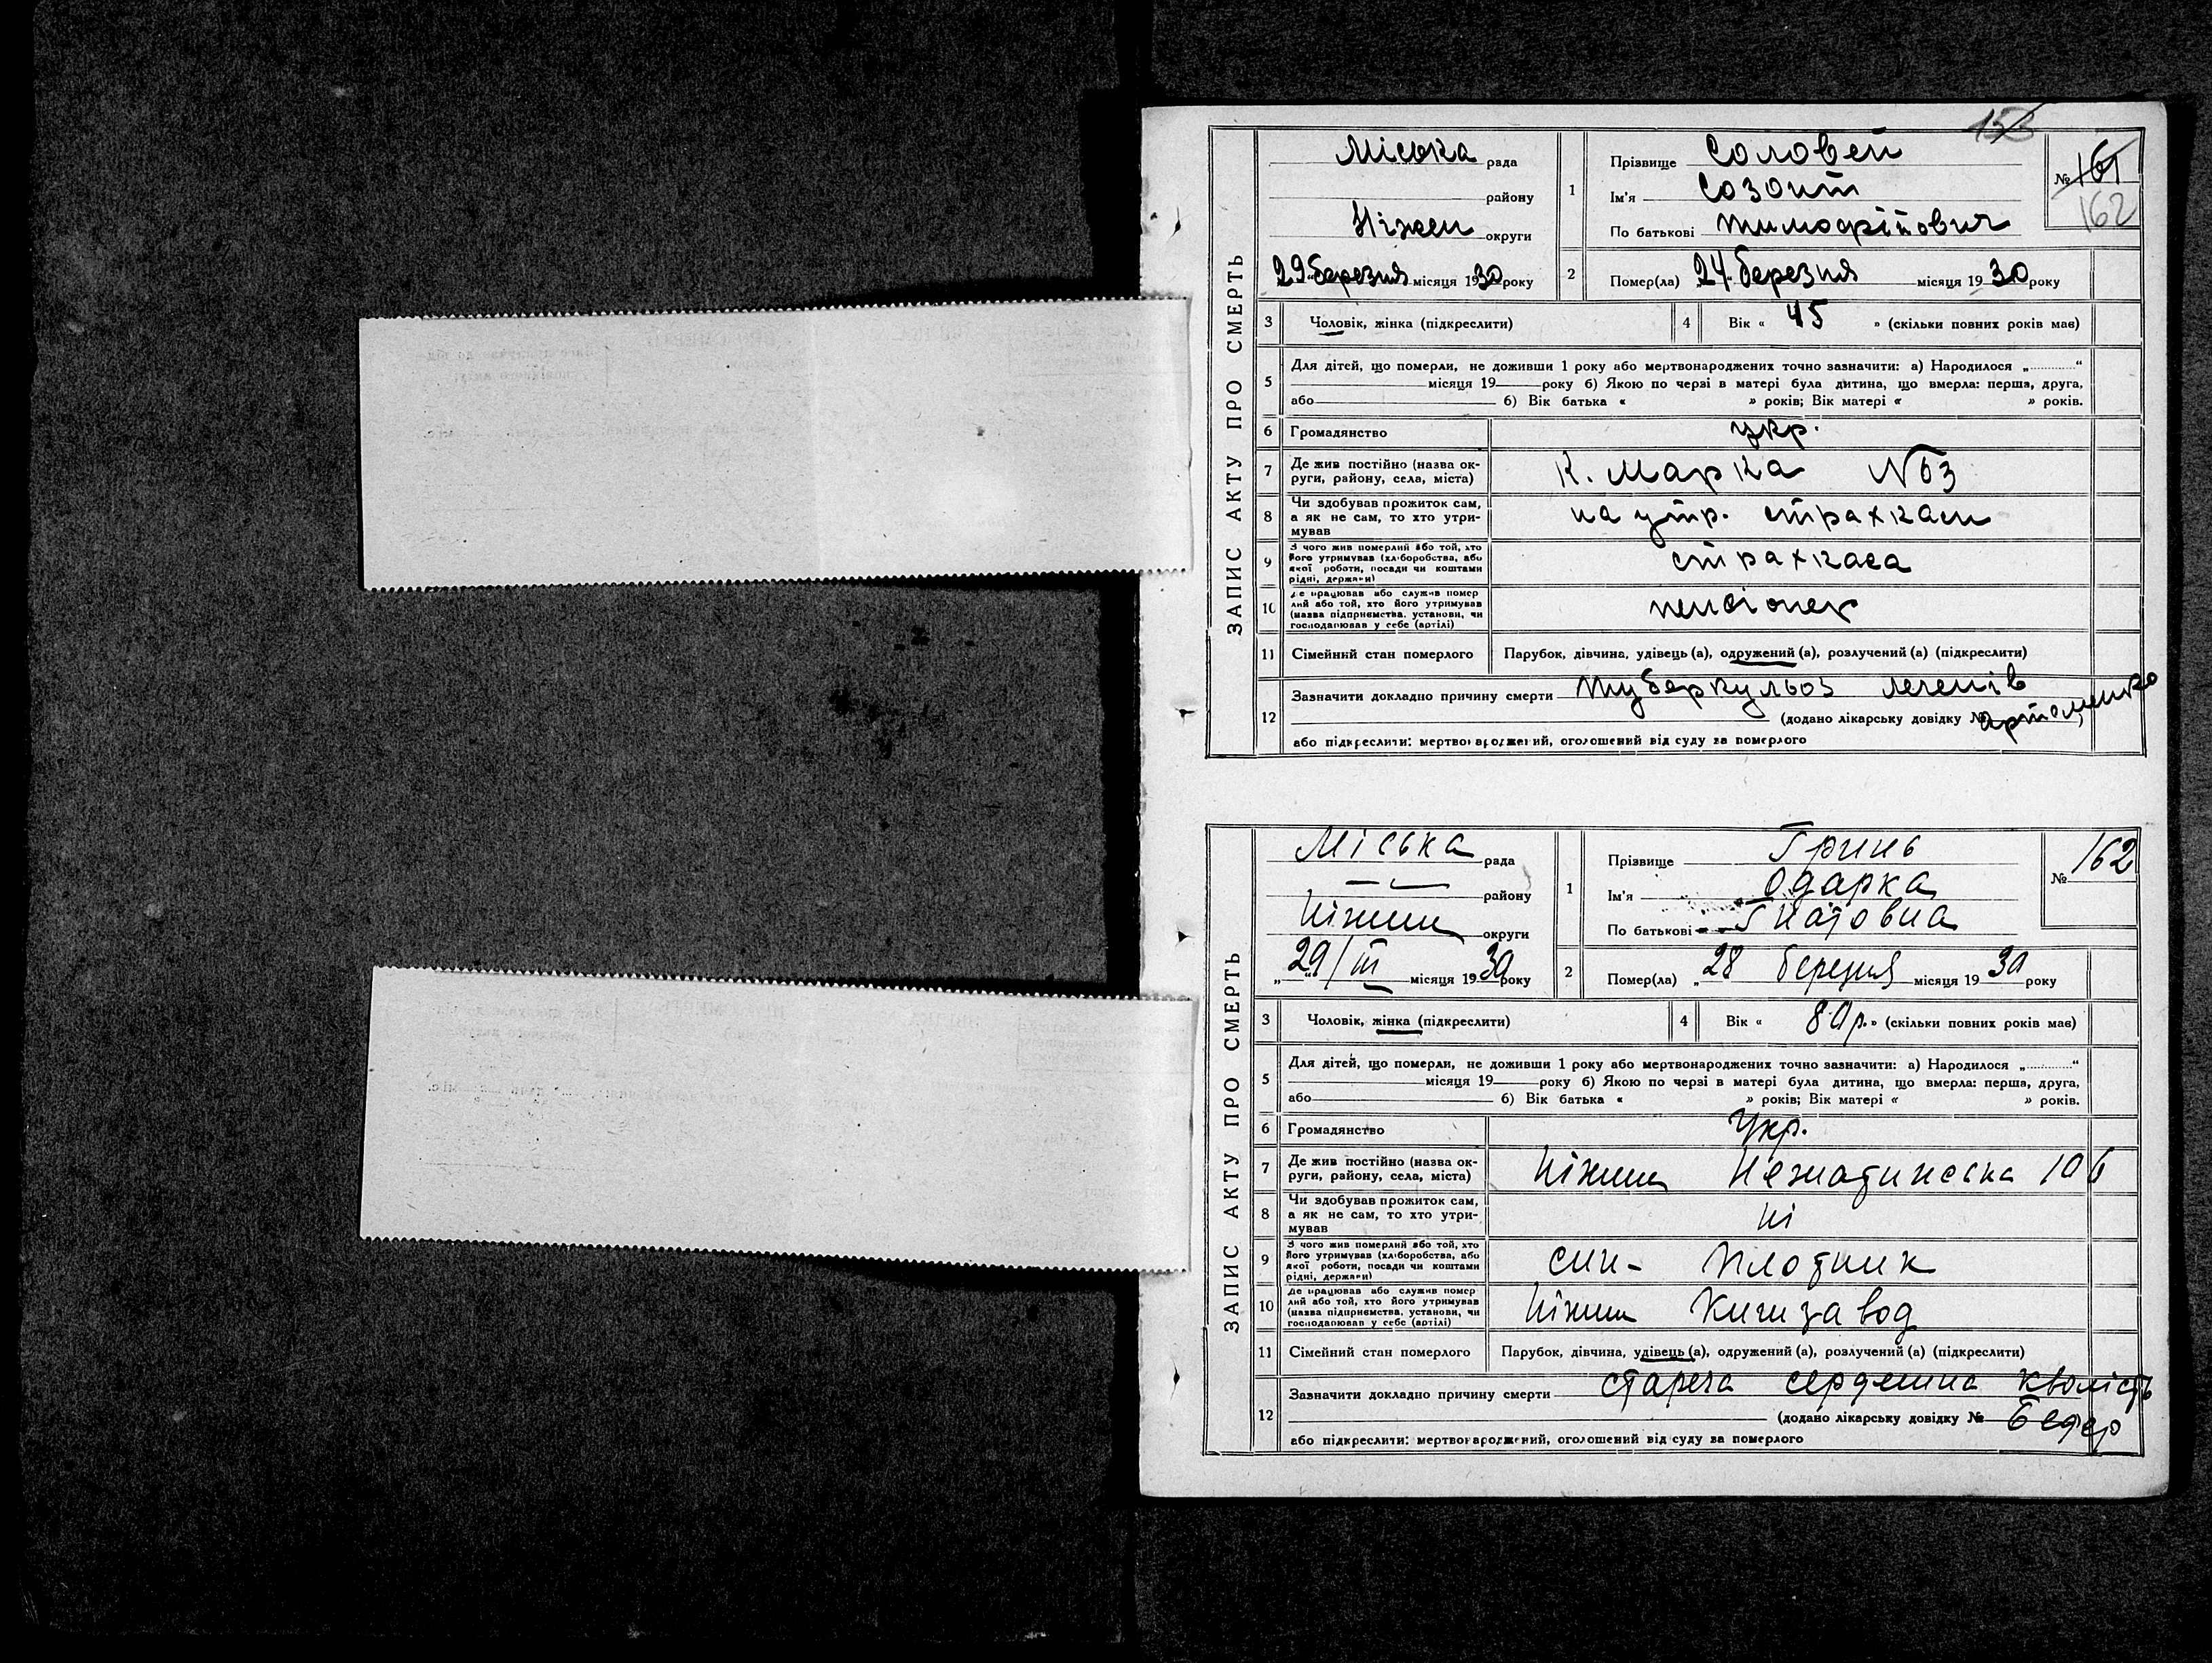 153
ЗАПИС АКТУ ПРО СМЕРТЬ
Міська рада
району
Ніжен округи
29 березня місяця 1930 року
1
Прізвище Соловей
Ім'я Созонт
По батькові Тимофійович
№ 161
162
2
Помер(ла) „24" березня місяця 1930 року
3 Чоловік, жінка (підкреслити)
4 Вік « 45 » (скільки повних років має)
5
Для дітей, що померли, не доживши 1 року або мертвонароджених точно зазначити: а) Народилося „ “
місяця 19 року б) Якою по черзі в матері була дитина, що вмерла: перша, друга,
або б) Вік батька « » років; Вік матері « » років.
6 Громадянство укр.
7 Де жив постійно (назва округи, району, села, міста) К. Маркса № 63
8 Чи здобував прожиток сам, а як не сам, то хто утримував на утр. страхкаси
9 З чого жив померлий або той, хто його утримував (хліборобства, або якої роботи, посади чи коштами рідні, держави) страхкаса
10 Де працював або служив померлий або той, хто його утримував (назва підприємства, установи, чи господарював у себе (артілі) пенсіонер
11 Сімейний стан померлого Парубок, дівчина, удівець (а), одружений (а), розлучений (а) (підкреслити)
12
Зазначити докладно причину смерти туберкульоз легенів
(додано лікарську довідку № Артеменко)
або підкреслити: мертвонароджений, оголошений від суду за померлого
ЗАПИС АКТУ ПРО СМЕРТЬ
Міська рада
району
Ніжин округи
„29/III місяця 1930 року
1
Прізвище Гринь
Ім'я Одарка
По батькові Гнатовна
№ 162
2
Помер(ла) „28 березня місяця 1930 року
3 Чоловік, жінка (підкреслити)
4 Вік « 80 р. » (скільки повних років має)
5
Для дітей, що померли, не доживши 1 року або мертвонароджених точно зазначити: а) Народилося „ “
місяця 19 року б) Якою по черзі в матері була дитина, що вмерла: перша, друга,
або б) Вік батька « » років; Вік матері « » років.
6 Громадянство Укр.
7 Де жив постійно (назва округи, району, села, міста) Ніжин 106
8 Чи здобував прожиток сам, а як не сам, то хто утримував ні
9 З чого жив померлий або той, хто його утримував (хліборобства, або якої роботи, посади чи коштами рідні, держави) син - плотник
10 Де працював або служив померлий або той, хто його утримував (назва підприємства, установи, чи господарював у себе (артілі) Ніжин
11 Сімейний стан померлого Парубок, дівчина, удівець (а), одружений (а), розлучений (а) (підкреслити)
12
Зазначити докладно причину смерти стареча сердешна кволість
(додано лікарську довідку №
або підкреслити: мертвонароджений, оголошений від суду за померлого